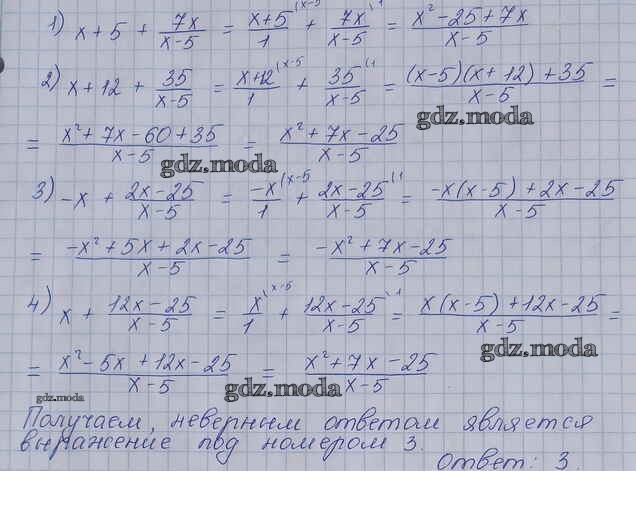 1) x+5 + 7x/(x-5) = (x+5)/1 (x-5 + 7x/(x-5) \1 = (x²-25+7x)/(x-5)
2) x+12 + 35/(x-5) = (x+12)/1 (x-5 + 35/(x-5) (1 = ((x-5)(x+12)+35)/(x-5) =
gdz.moda
= (x²+7x-60+35)/(x-5) = (x²+7x-25)/(x-5)
gdz.moda
3) -x + (2x-25)/(x-5) = (-x)/1 (x-5 + (2x-25)/(x-5) (1 = (-x(x-5)+2x-25)/(x-5)
= (-x²+5x+2x-25)/(x-5) = (-x²+7x-25)/(x-5)
4) x + (12x-25)/(x-5) = x/1 (x-5 + (12x-25)/(x-5) \1 = (x(x-5)+12x-25)/(x-5) =
gdz.moda
= (x²-5x+12x-25)/(x-5) = (x²+7x-25)/(x-5)
gdz.moda
gdz.moda
Получаем, неверным ответом является
выражение под номером 3.
Ответ: 3.